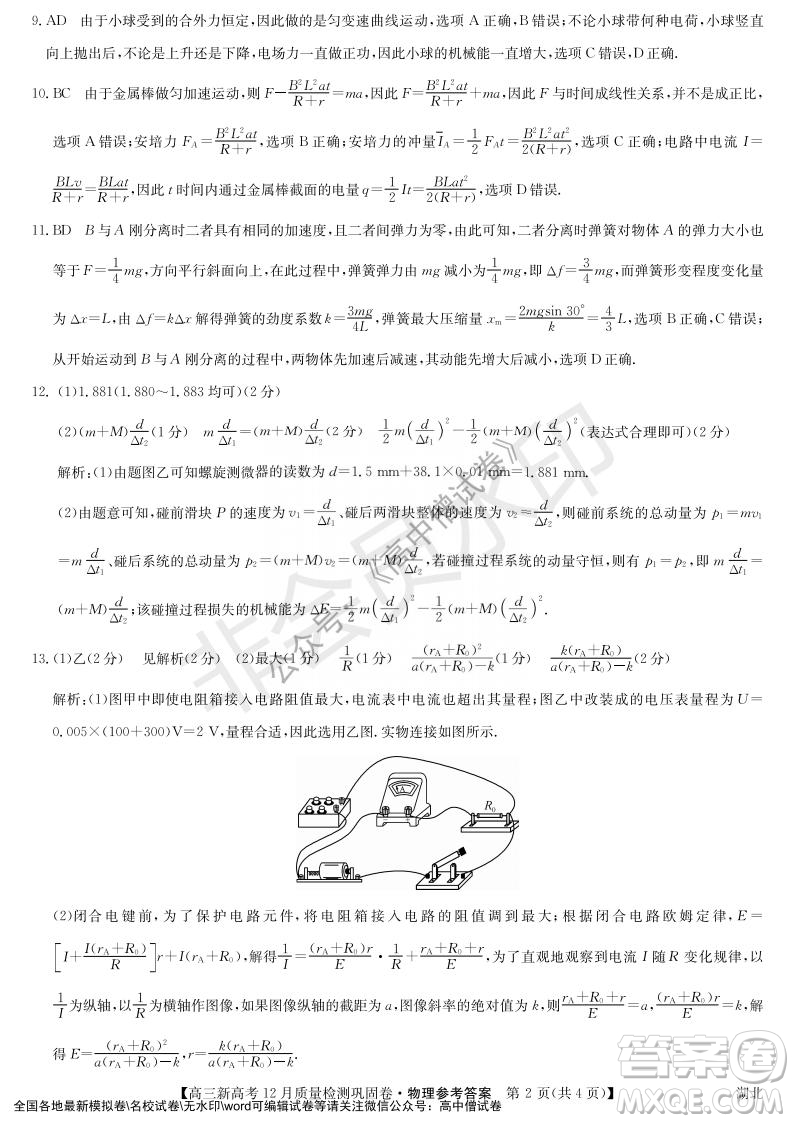 9. AD　由于小球受到的合外力恒定,因此做的是匀变速曲线运动,选项 A 正确,B 错误;不论小球带何种电荷,小球竖直
向上抛出后,不论是上升还是下降,电场力一直做正功,因此小球的机械能一直增大,选项 C 错误,D 正确.
10. BC　由于金属棒做匀加速运动,则 F−B²L²at/(R+r)=ma,因此 F=B²L²at/(R+r)+ma,因此 F 与时间成线性关系,并不是成正比,
选项 A 错误;安培力 F_A=B²L²at/(R+r),选项 B 正确;安培力的冲量 I̅_A=1/2 F_A t=B²L²at²/2(R+r),选项 C 正确;电路中电流 I=
BLv/(R+r)=BLat/(R+r),因此 t 时间内通过金属棒截面的电量 q=1/2 It=BLat²/2(R+r),选项 D 错误.
11. BD　B 与 A 刚分离时二者具有相同的加速度,且二者间弹力为零,由此可知,二者分离时弹簧对物体 A 的弹力大小也
等于 F=1/4 mg,方向平行斜面向上,在此过程中,弹簧弹力由 mg 减小为 1/4 mg,即 Δf=3/4 mg,而弹簧形变程度变化量
为 Δx=L,由 Δf=kΔx 解得弹簧的劲度系数 k=3mg/4L,弹簧最大压缩量 x_m=2mgsin 30°/k=4/3 L,选项 B 正确,C 错误;
从开始运动到 B 与 A 刚分离的过程中,两物体先加速后减速,其动能先增大后减小,选项 D 正确.
12. (1)1.881(1.880～1.883 均可)(2 分)
(2)(m+M)d/Δt₂(1 分)　m d/Δt₁=(m+M)d/Δt₂(2 分)　1/2 m(d/Δt₁)²−1/2(m+M)(d/Δt₂)²(表达式合理即可)(2 分)
解析:(1)由题图乙可知螺旋测微器的读数为 d=1.5 mm+38.1×0.01 mm=1.881 mm.
(2)由题意可知,碰前滑块 P 的速度为 v₁=d/Δt₁、碰后两滑块整体的速度为 v₂=d/Δt₂,则碰前系统的总动量为 p₁=mv₁
=m d/Δt₁、碰后系统的总动量为 p₂=(m+M)v₂=(m+M)d/Δt₂,若碰撞过程系统的动量守恒,则有 p₁=p₂,即 m d/Δt₁=
(m+M)d/Δt₂;该碰撞过程损失的机械能为 ΔE=1/2 m(d/Δt₁)²−1/2(m+M)(d/Δt₂)².
13. (1)乙(2 分)　见解析(2 分)　(2)最大(1 分)　1/R(1 分)　(r_A+R₀)²/(a(r_A+R₀)−k)(1 分)　k(r_A+R₀)/(a(r_A+R₀)−k)(2 分)
解析:(1)图甲中即使电阻箱接入电路阻值最大,电流表中电流也超出其量程;图乙中改装成的电压表量程为 U=
0.005×(100+300)V=2 V,量程合适,因此选用乙图.实物连接如图所示.
A
R₀
(2)闭合电键前,为了保护电路元件,将电阻箱接入电路的阻值调到最大;根据闭合电路欧姆定律,E=
[I+I(r_A+R₀)/R]r+I(r_A+R₀),解得 1/I=(r_A+R₀)r/E · 1/R+(r_A+R₀+r)/E,为了直观地观察到电流 I 随 R 变化规律,以
1/I 为纵轴,以 1/R 为横轴作图像,如果图像纵轴的截距为 a,图像斜率的绝对值为 k,则 (r_A+R₀+r)/E=a,(r_A+R₀)r/E=k,解
得 E=(r_A+R₀)²/(a(r_A+R₀)−k),r=k(r_A+R₀)/(a(r_A+R₀)−k).
【高三新高考 12 月质量检测巩固卷·物理参考答案　第 2 页(共 4 页)】　湖北
全国各地最新模拟卷\名校试卷\无水印\word可编辑试卷等请关注微信公众号：高中僧试卷
非会员水印
公众号：《高中僧试卷》
答案圈
MXQE.COM